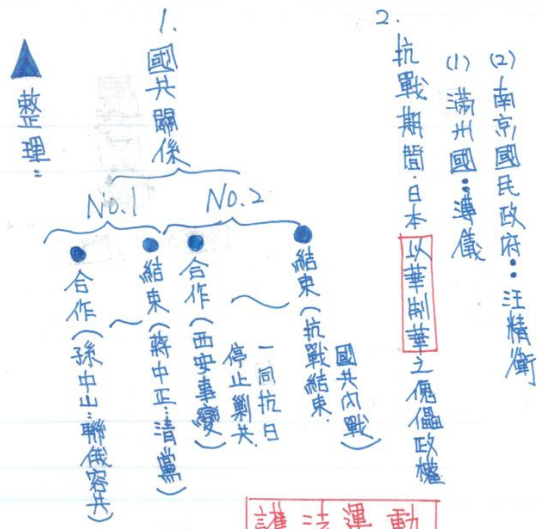 ▲整理:
1. 國共關係
No.1
●合作(孫中山:聯俄容共)
~
●結束(蔣中正:清黨)
No.2
●合作(西安事變)
停止剿共.
一同抗日
~
●結束(抗戰結束.
國共內戰)
2. 抗戰期間,日本以華制華之傀儡政權
(1) 滿州國:溥儀
(2) 南京國民政府:汪精衛
護法運動